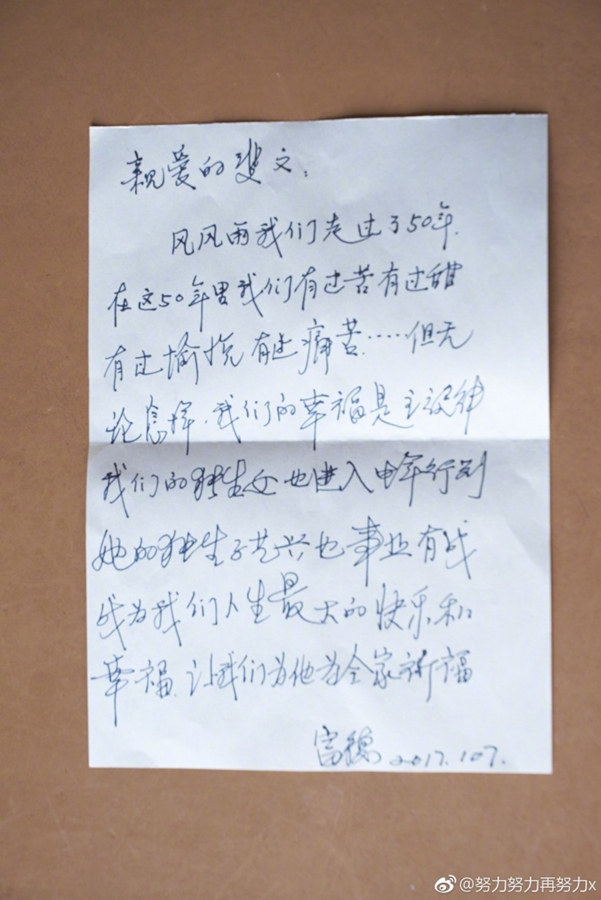 亲爱的斐文：
风风雨我们走过了50年
在这50年里我们有过苦有过甜
有过愉悦有过痛苦……但无
论怎样.我们的幸福是主旋律
我们的独生女也进入中年行列
她的独生子艺兴也事业有成
成为我们人生最大的快乐和
幸福.让我们为他为全家祈福
富德 2017.107.
@努力努力再努力x